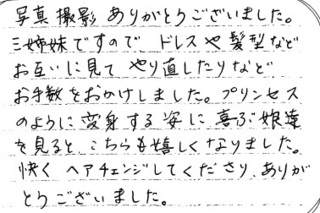 写真撮影ありがとうございました。
三姉妹ですので ドレスや髪型など
お互いに見て やり直したりなど
お手数をおかけしました。プリンセス
のように変身する姿に喜ぶ娘達
を見ると、こちらも嬉しくなりました。
快く ヘアチェンジしてくださり、ありが
とうございました。